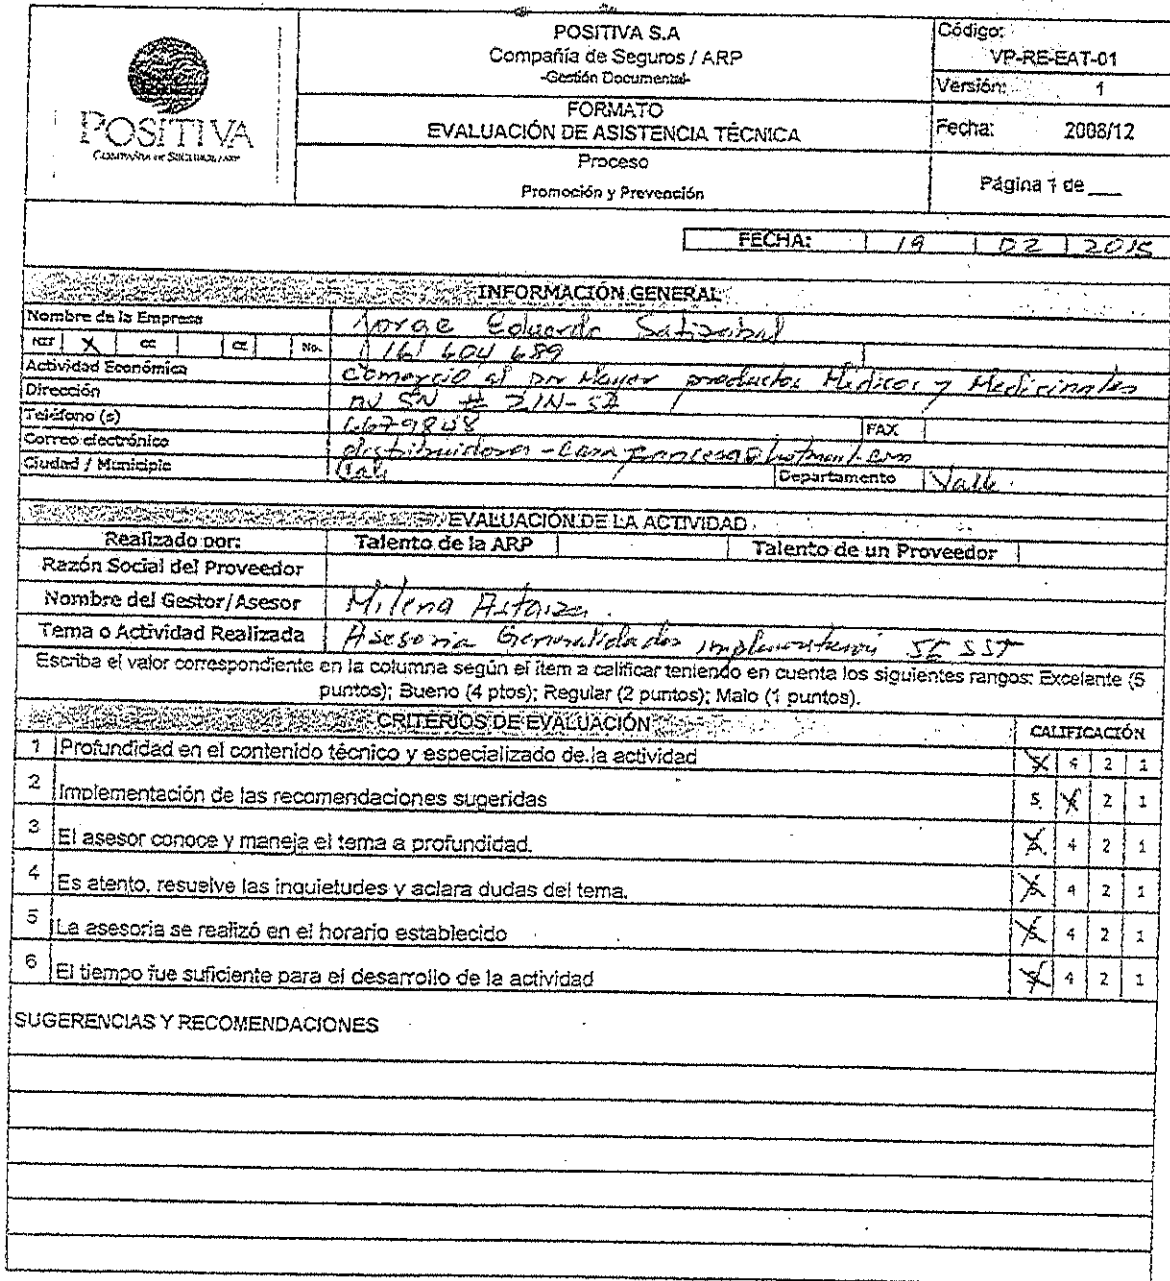 POSITIVA S.A
Compañía de Seguros / ARP
-Gestión Documental-
Código:
VP-RE-EAT-01
Versión: 1
POSITIVA
COMPAÑÍA DE SEGUROS / ARP
FORMATO
EVALUACIÓN DE ASISTENCIA TÉCNICA
Fecha: 2008/12
Proceso
Promoción y Prevención
Página 1 de ___
FECHA: 19 02 2015
INFORMACIÓN GENERAL
Nombre de la Empresa Jorge Eduardo Satizabal
NIT X CC CE No. 16 604 689
Actividad Económica Comercio al por Mayor productos Médicos y Medicinales
Dirección AV 5N # 21N-52
Teléfono (s) 6679848 FAX
Correo electrónico
Ciudad / Municipio Cali Departamento Valle.
EVALUACIÓN DE LA ACTIVIDAD
Realizado por: Talento de la ARP Talento de un Proveedor
Razón Social del Proveedor
Nombre del Gestor/Asesor Milena Astaiza.
Tema o Actividad Realizada Asesoria Generalidades implementación SG SST
Escriba el valor correspondiente en la columna según el ítem a calificar teniendo en cuenta los siguientes rangos: Excelante (5
puntos); Bueno (4 ptos); Regular (2 puntos); Malo (1 puntos).
CRITERIOS DE EVALUACIÓN CALIFICACIÓN
1 Profundidad en el contenido técnico y especializado de la actividad 5 4 2 1
2 Implementación de las recomendaciones sugeridas 5 4 2 1
3 El asesor conoce y maneja el tema a profundidad. 5 4 2 1
4 Es atento, resuelve las inquietudes y aclara dudas del tema. 5 4 2 1
5 La asesoria se realizó en el horario establecido 5 4 2 1
6 El tiempo fue suficiente para el desarrollo de la actividad 5 4 2 1
SUGERENCIAS Y RECOMENDACIONES